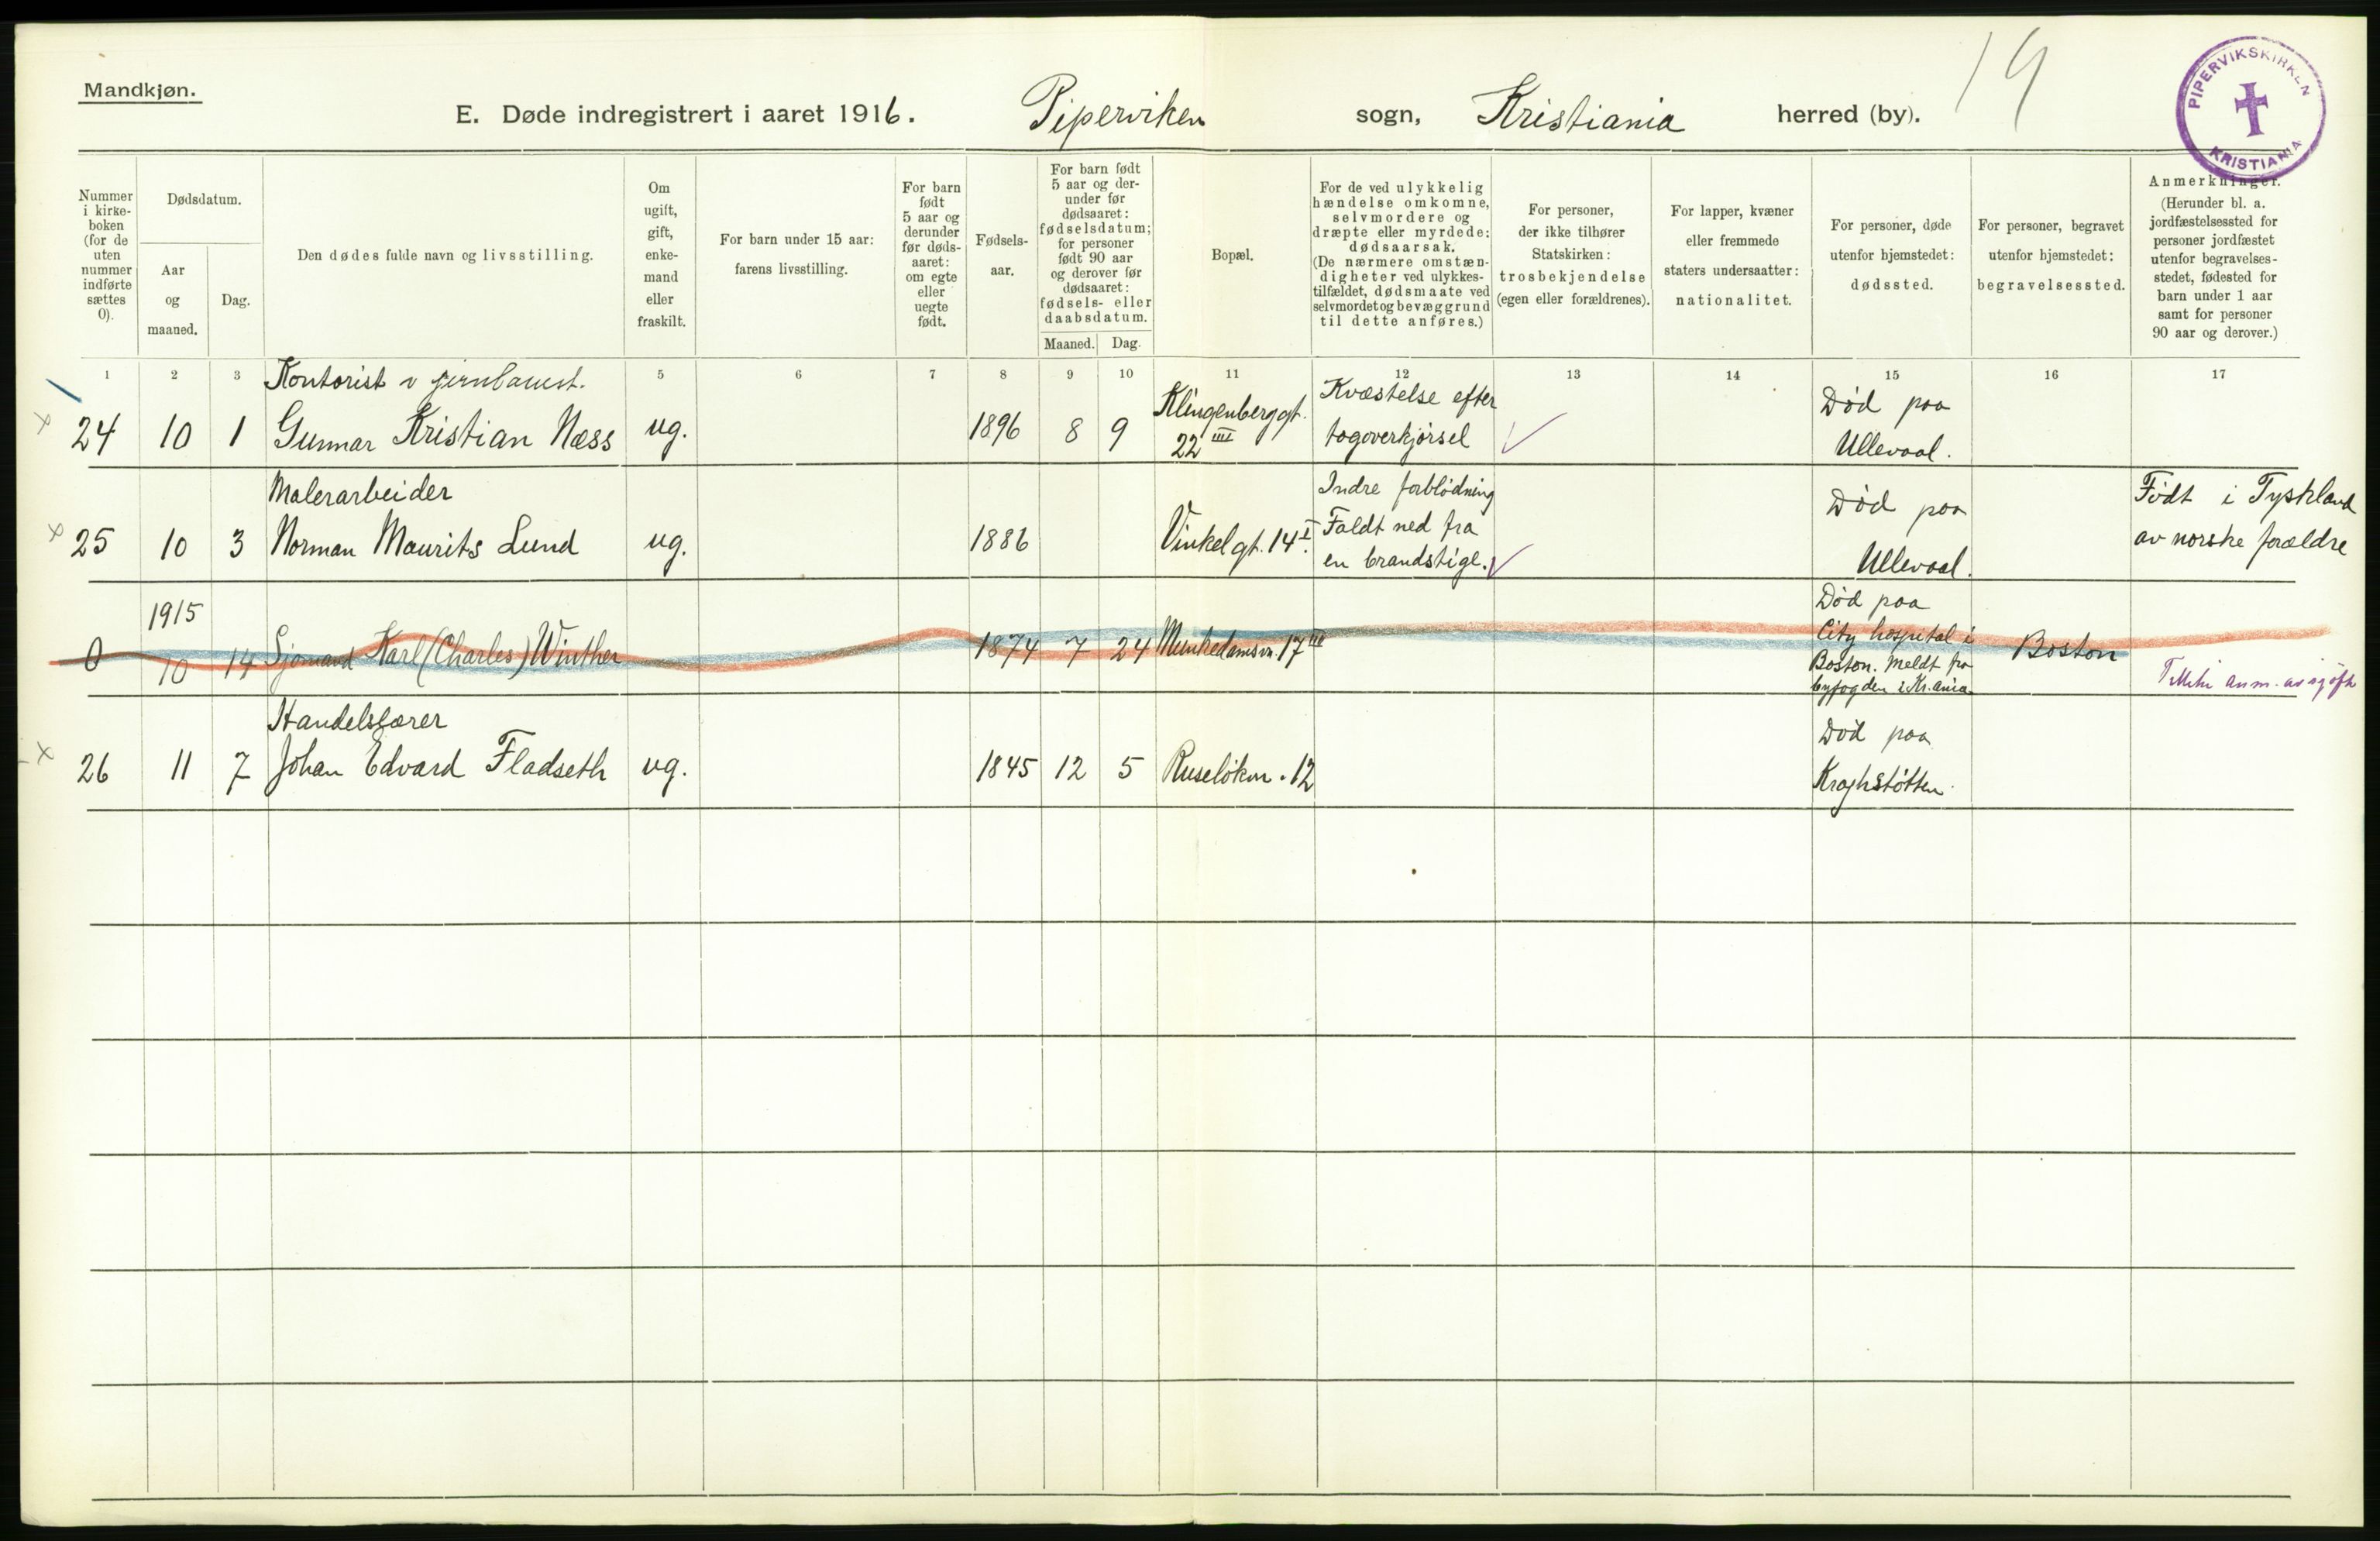 Mandkjøn.
E. Døde indregistrert i aaret 1916. Piperviken sogn, Kristiania herred (by).
19
PIPERVIKSKIRKEN
KRISTIANIA
Nummer
i kirke-
boken
(for de
uten
nummer
indførte
sættes
0).
Dødsdatum.
Aar
og
maaned.
Dag.
Den dødes fulde navn og livsstilling.
Om
ugift,
gift,
enke-
mand
eller
fraskilt.
For barn under 15 aar:
farens livsstilling.
For barn
født
5 aar og
derunder
før døds-
aaret:
om egte
eller
uegte
født.
Fødsels-
aar.
For barn født
5 aar og der-
under før
dødsaaret:
fødselsdatum;
for personer
født 90 aar
og derover før
dødsaaret:
fødsels- eller
daabsdatum.
Maaned.
Dag.
Bopæl.
For de ved ulykkelig
hændelse omkomne,
selvmordere og
dræpte eller myrdede:
dødsaarsak.
(De nærmere omstæn-
digheter ved ulykkes-
tilfældet, dødsmaate ved
selvmordet og bevæggrund
til dette anføres.)
For personer,
der ikke tilhører
Statskirken:
trosbekjendelse
(egen eller forældrenes).
For lapper, kvæner
eller fremmede
staters undersaatter:
nationalitet.
For personer, døde
utenfor hjemstedet:
dødssted.
For personer, begravet
utenfor hjemstedet:
begravelsessted.
Anmerkninger.
(Herunder bl. a.
jordfæstelsessted for
personer jordfæstet
utenfor begravelses-
stedet, fødested for
barn under 1 aar
samt for personer
90 aar og derover.)
1 2 3 5 6 7 8 9 10 11 12 13 14 15 16 17
Kontorist v jernbanest.
24 10 1 Gunnar Kristian Næss ug. 1896 8 9
Klingenberggt.
22 III
Kvæstelse efter
togoverkjørsel
Død paa
Ullevaal.
Malerarbeider
25 10 3 Norman Maurits Lund ug. 1886 Vinkelgt. 14 I.
Indre forblødning
Faldt ned fra
en brandstige.
Død paa
Ullevaal.
Født i Tyskland
av norske forældre
1915
0 10 14 Sjømand Karl (Charles) Winther 1874 7 24 Munkedamsvn. 17 III
Død paa
City hospital i
Boston. Meldt fra
byfogden i Kr.ania.
Boston
anm. av
Handelsfører
26 11 7 Johan Edvard Fladseth ug. 1845 12 5 Ruseløkvn. 12
Død paa
Kraghstøtten.